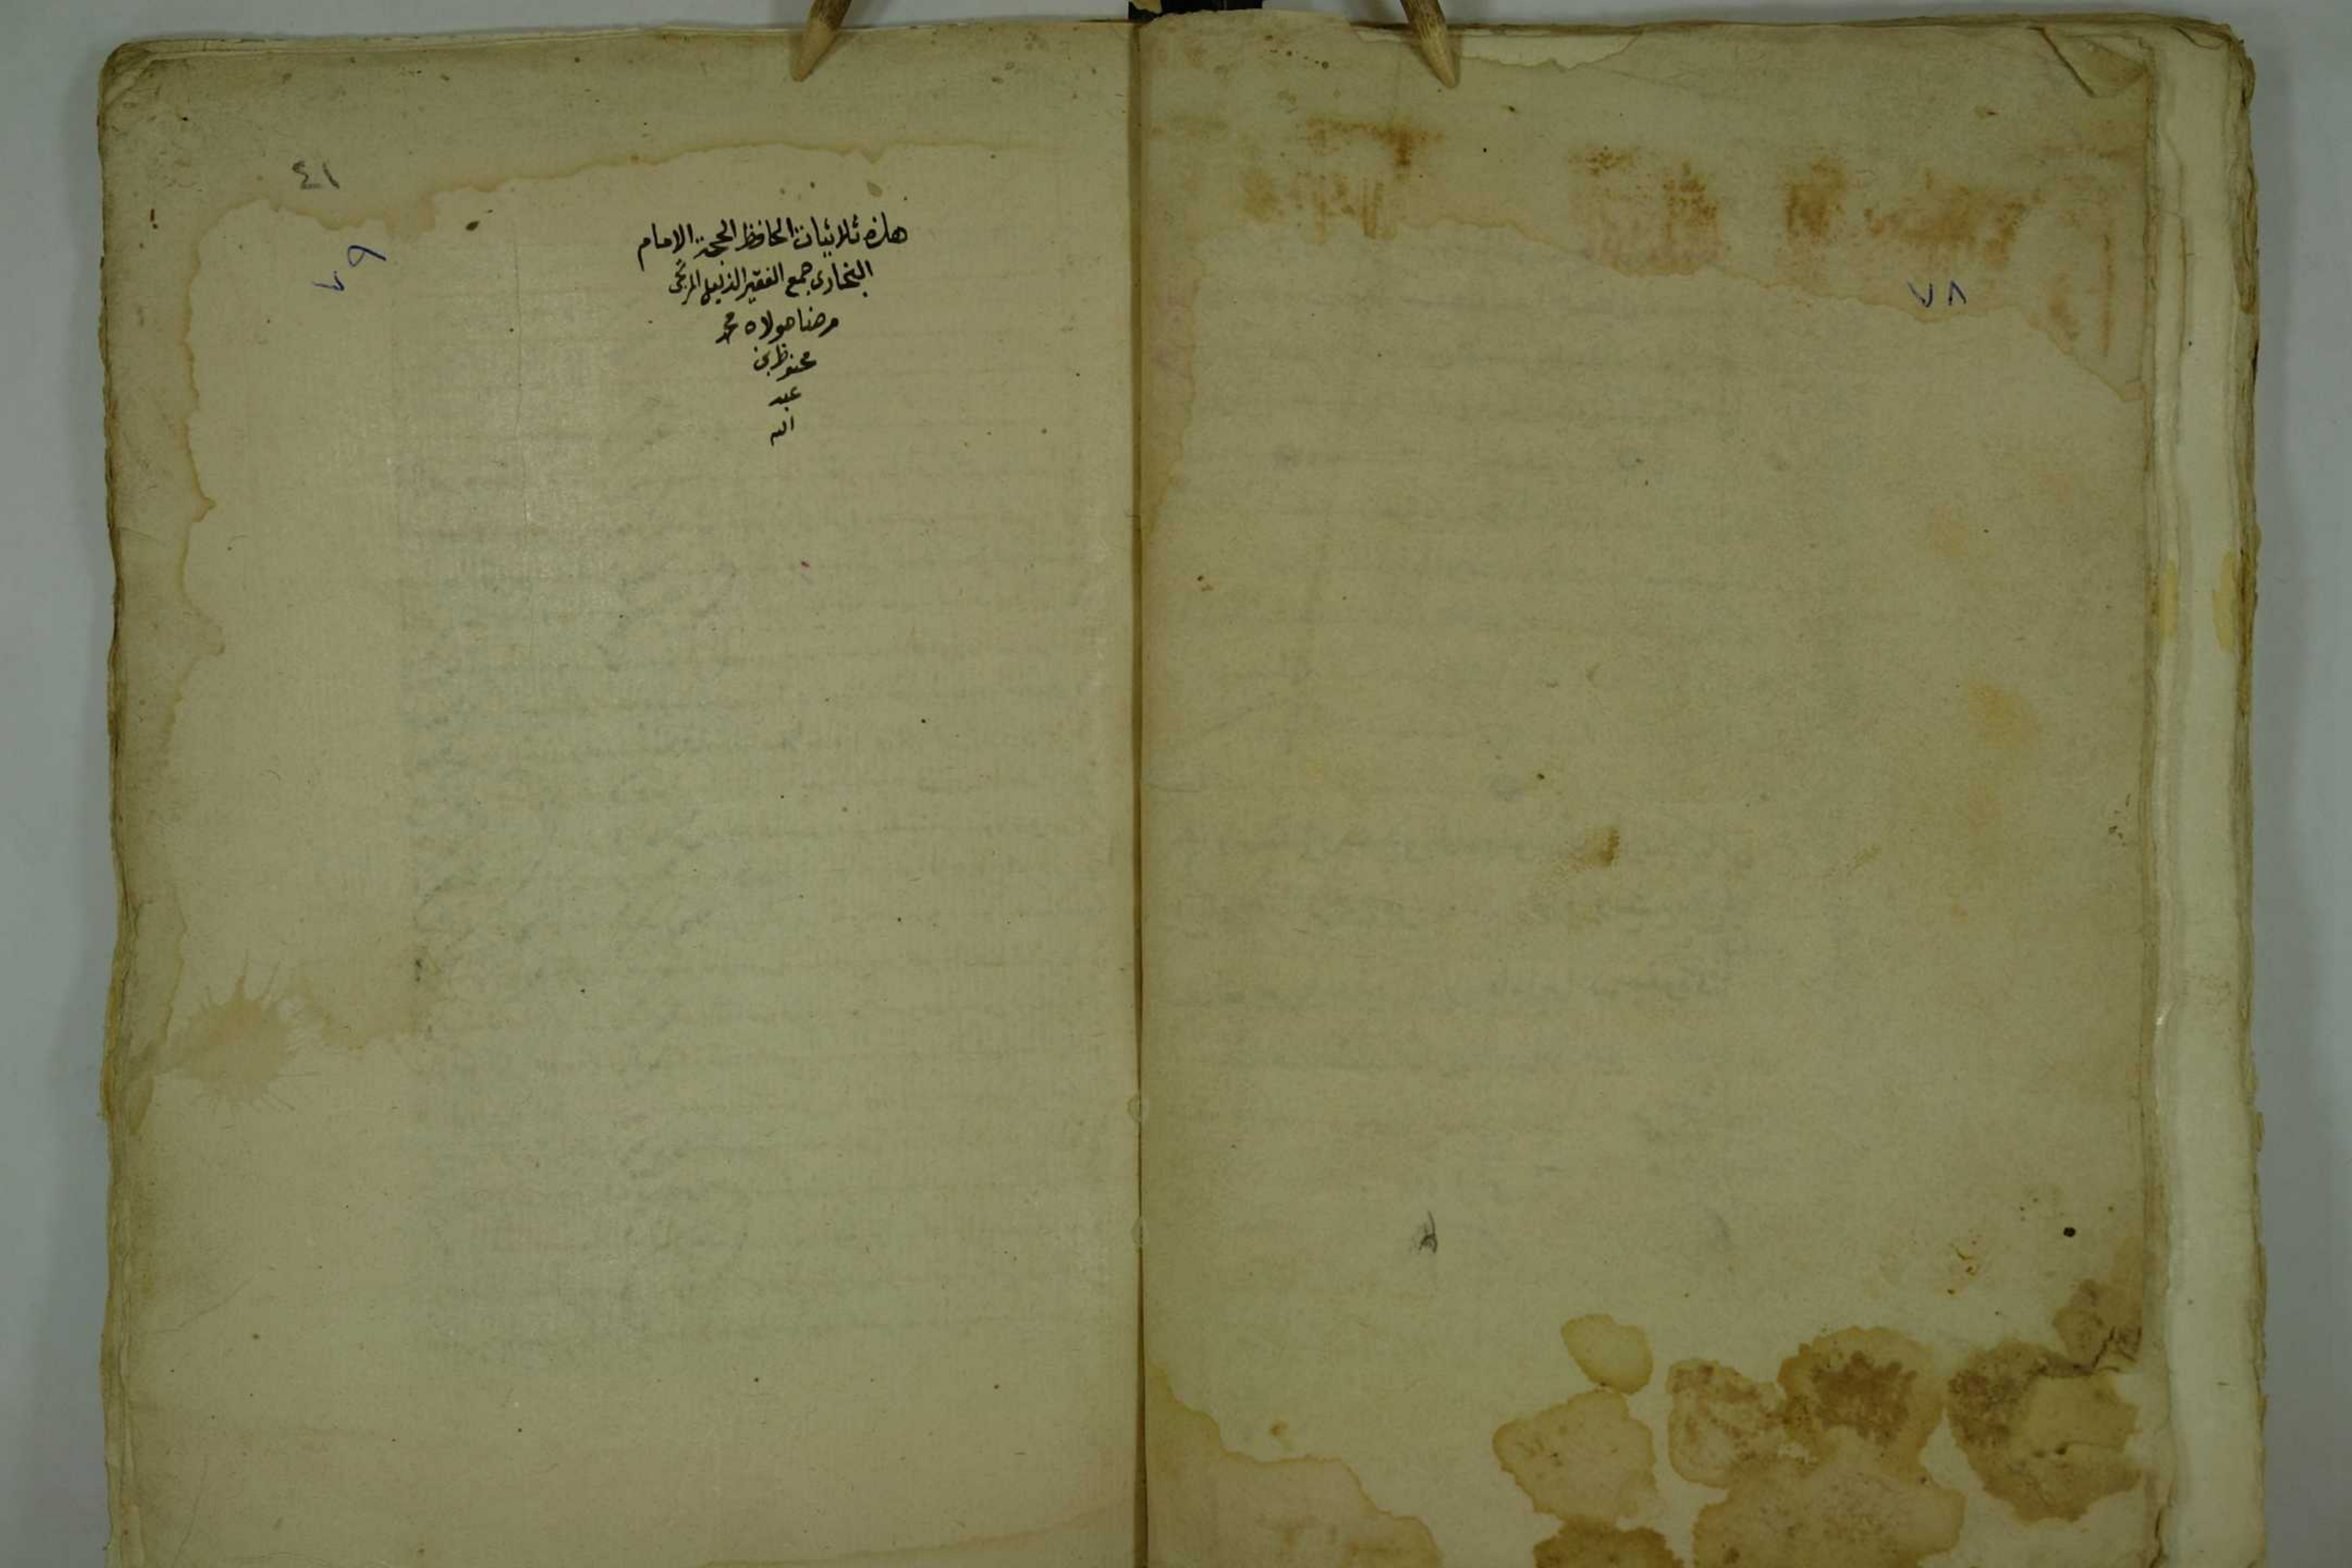 ٧٨
٤١
٧٩
هذه ثلاثيات الحافظ الحجة الامام
البخارى جمع الفقير الذليل المرتجى
من رضا مولاه محمد
محفوظ بن
عبد
الله